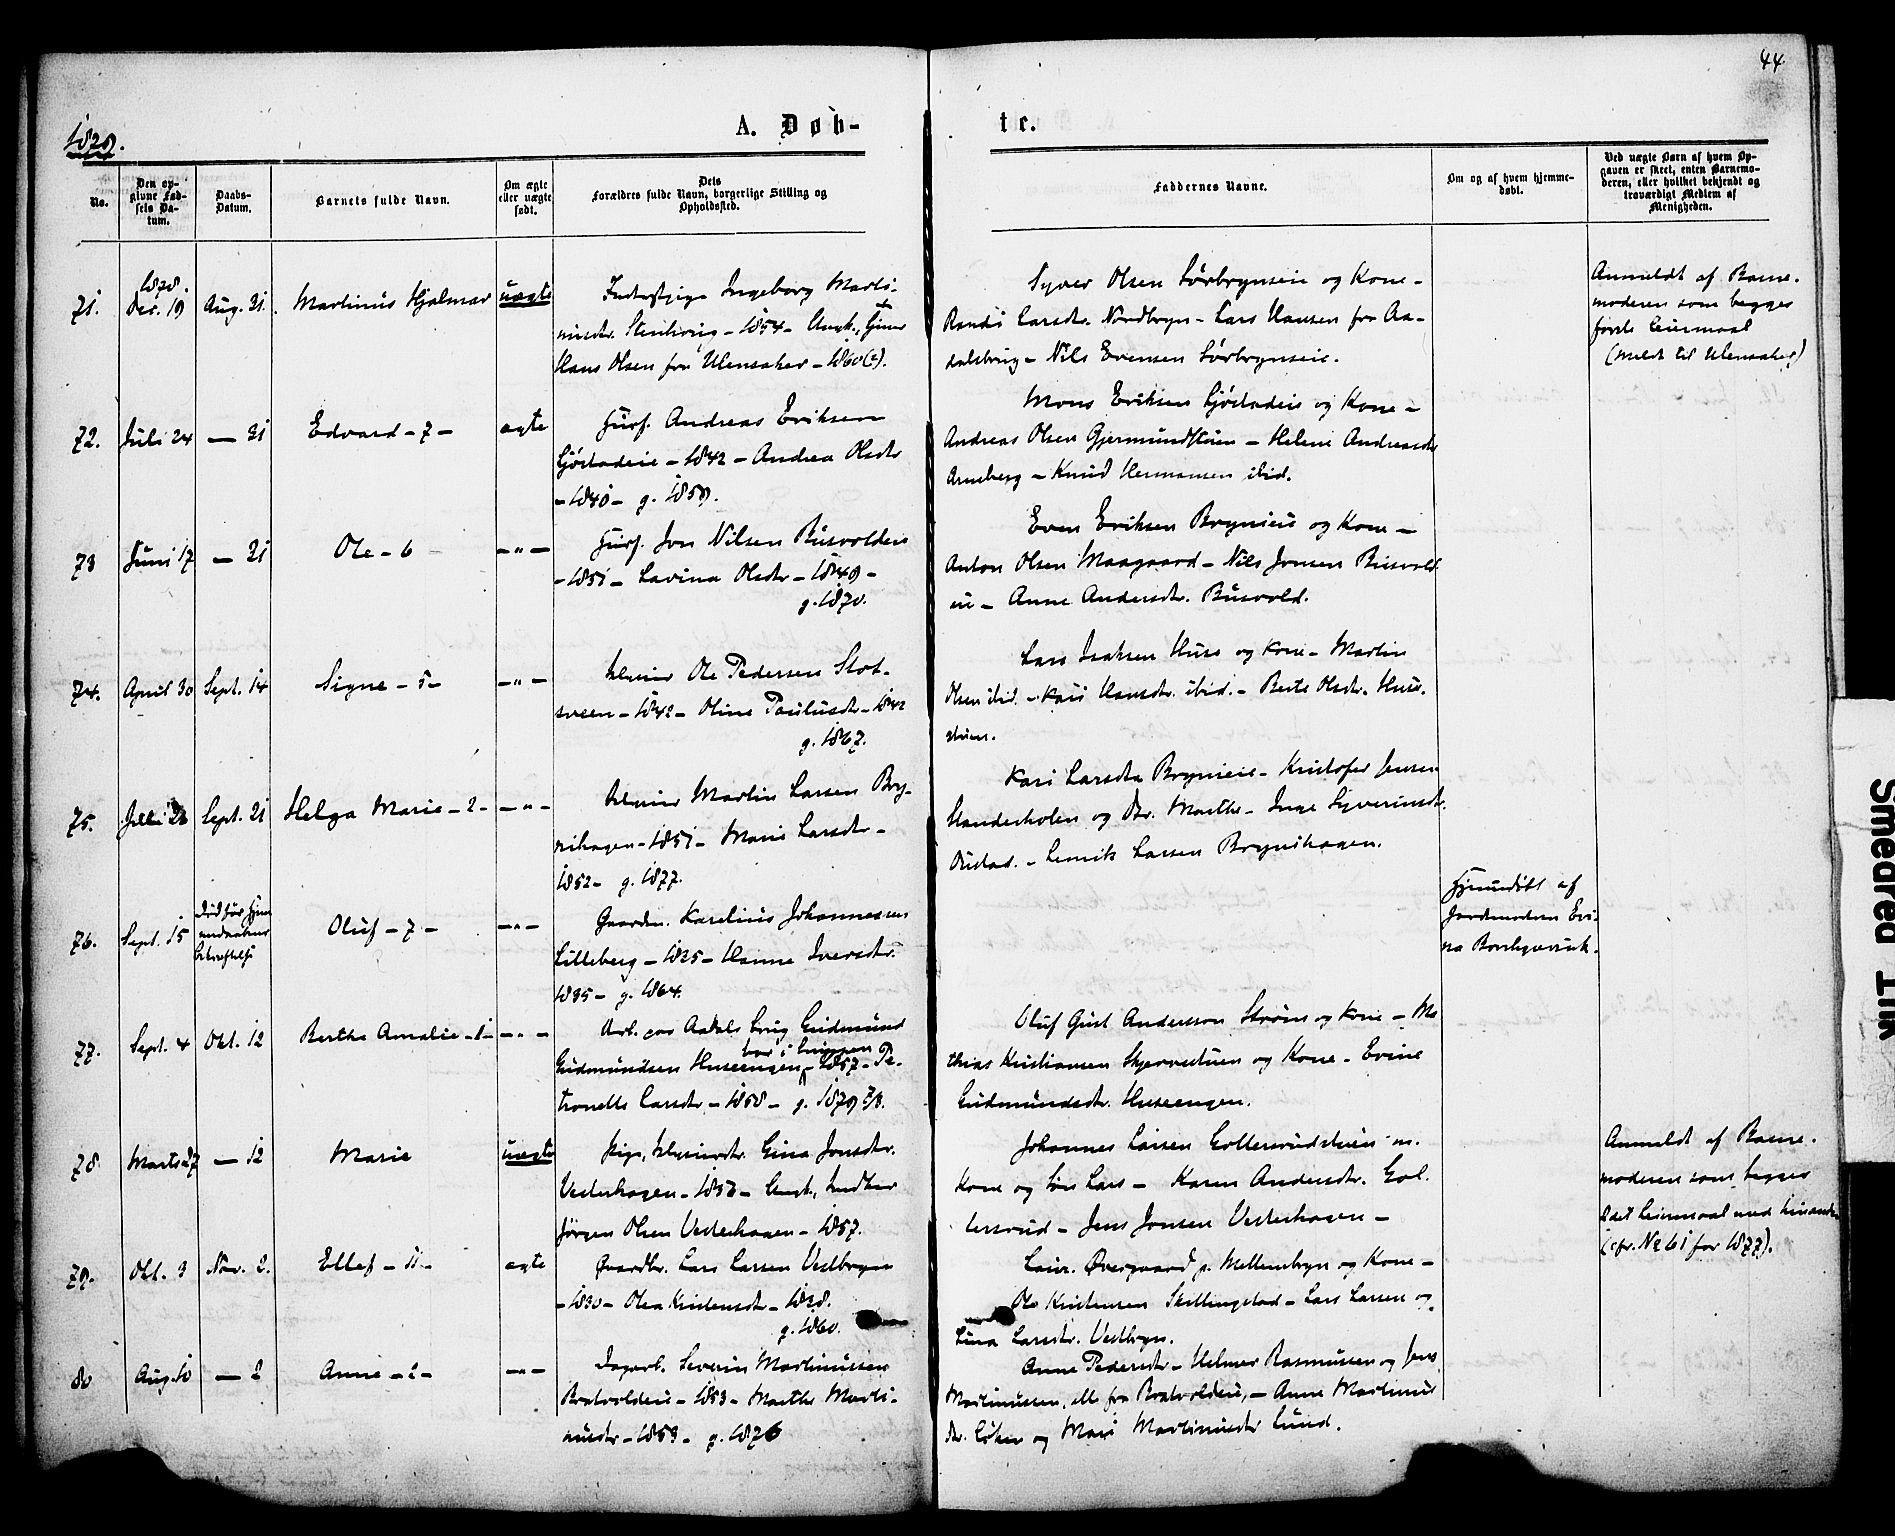 44
1879.
A. Døb-
te.
No.
Den op-
givne Fød-
sels Da-
tum.
Daabs-
Datum.
Barnets fulde Navn.
Om ægte
eller uægte
født.
Dets
Forældres fulde Navn, borgerlige Stilling og
Opholdssted.
Faddernes Navne.
Om og af hvem hjemme-
døbt.
Ved uægte Børn af hvem Op-
gaven er skeet, enten Barnemo-
deren, eller hvilket bekjendt og
troværdigt Medlem af
Menigheden.
71.
1878.
Dec. 19
Aug. 31.
Martinus Hjalmar
uægte
Ingeborg Marti-
nusdtr. - 1854 - Ungk.,
Hans Olsen fra Ullensaker - 1860(?).
Syver Olsen Sørbryneie og Kone -
Randi Larsdtr. Nordbryn - Lars Hansen fra Aa-
dalsbrug - Nils Evensen Sørbryneie.
Anmeldt af Barne-
moderen som begges
første Leiermaal
(meldt til Ullensaker)
72.
Juli 24
— 31
Edvard - 7 -
ægte
Husf. Andreas Eriksen
- 1842 - Andrea Olsdtr
- 1840 - g. 1859.
Mons Eriksen og Kone -
Andreas Olsen Gjermundstuen - Helene Andreasdtr
Arneberg - Knud Hermansen ibid.
73
Juni 17
— 31
Ole - 6
—"—
Husf. Jon Nilsen Busvoldeie
- 1851 - Lavina Olsdtr - 1849 -
g. 1870.
Even Eriksen Bryneie og Kone -
Anton Olsen Maagaard - Nils Jonsen Busvold
eie - Anne Andersdtr. Busvold.
74.
April 30
Sept. 14
Signe - 5 -
—"—
Ole Pedersen Slot-
sveen - 1842 - Oline Paulusdtr - 1842
g. 1867.
Lars Isaksen Huse og Kone - Martin
Olsen ibid. - Kari Hansdtr. ibid. - Berte Olsdtr. Huse-
stuen.
75.
Juli
Sept. 21
Helga Marie - 2 -
—"—
Martin Larsen Bry-
nihagen - 1851 - Marie Larsdtr -
1852 - g. 1877.
Kari Larsdtr Bryneie - Kristofer Jensen
og Dtr. Marthe - Inge Syverinsdtr.
- Henrik Larsen Brynihagen.
76.
Sept. 15
Død før Hjem
medaabens
bekræftelse
Oluf - 7 -
—"—
Gaardm. Karelius Johannessen
Lilleberg - 1835 - Hanne Iversdtr.
1835 - g. 1864.
Hjemmedøbt af
Jordmoderen Evi-
na
77.
Sept. 4
Okt. 12
Berthe Amalie - 1 -
—"—
Arb. paa Aadals brug Gudmund
bor i
Gudmundsen Huseengen - 1857 - Pe-
tronelle Larsdtr - 1858 - g. 1879 7/8.
Oluf Gust Andersson Strøm og Kone - Ma
thias Kristiansen og Kone - Evine
Gudmundsdtr. Huseengen.
78
Marts 27
— 12
Marie
uægte
Pige, Gina Jonsdtr.
Vesterhagen - 1853 - Ungk.,
Jørgen Olsen Vesterhagen - 1857.
Johannes Larsen Gollerrudstuen m.
Kone og Søn Lars - Karen Andersdtr. Gol-
lerrud - Jens Jonsen Vesterhagen -
Anmeldt af Barne-
moderen som begges
2det Leiermaal med hinanden
(cfr. No 61 for 1877).
79.
Okt. 3
Nov. 2.
Ellef - 11 -
ægte
Gaardbr. Lars Larsen Vestbryn
- 1830 - Olea Kristensdtr - 1838.
g. 1860.
Laur. Øvergaard p. Mellembryn og Kone -
Ole Kristensen Skillingstad - Lars Larsen og
Lina Larsdtr. Vestbryn.
80
Aug. 10
— 2
Anne - 2 -
—"—
Dagarb. Severin Martinussen
Bratvoldeie - 1853 - Marthe Marti-
nusdtr - 1853 - g. 1876
Anne Pedersdtr - Helmer Rasmussen og Jens
Martinussen, alle fra Bratvoldeie, - Anne Martinus
dtr. og Mari Martinusdtr Lund.
Smeared Ink